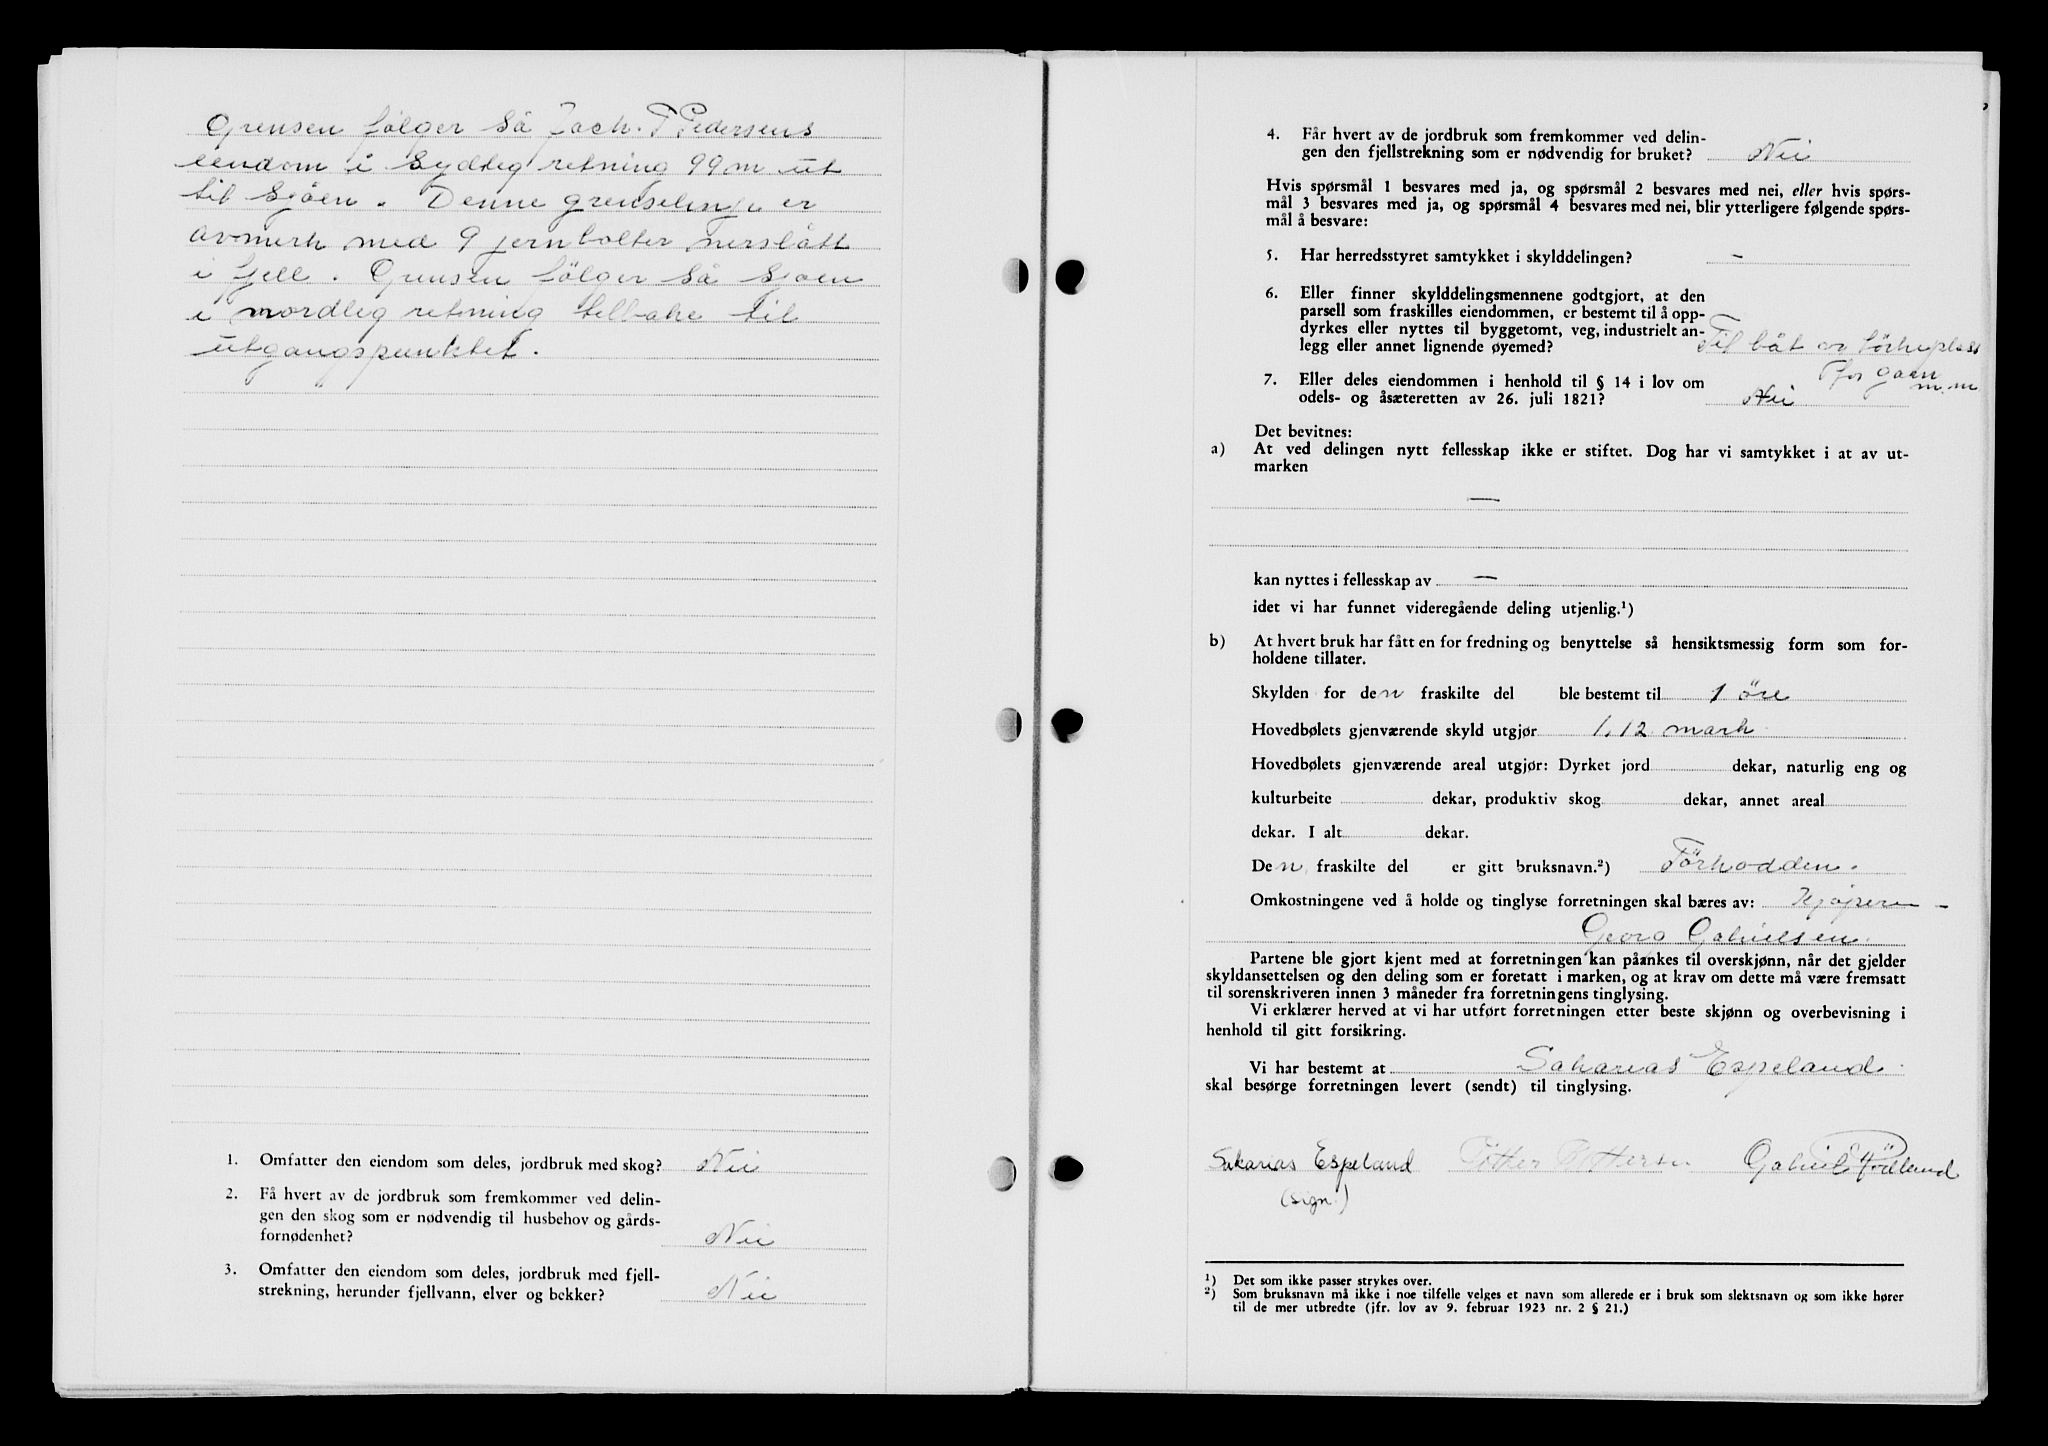 Grensen følger så Zach. T Pedersens
eendom i sydleg retning 99 m ut
til sjöen. Denne grenselinje er
avmerk med 9 jernbolter nerslått
i fjell. Grensen fölger så sjöen
i nordleg retning tilbake til
utgangspunktet.
1. Omfatter den eiendom som deles, jordbruk med skog? Nei
2. Få hvert av de jordbruk som fremkommer ved delin-
gen den skog som er nødvendig til husbehov og gårds-
fornødenhet? Nei
3. Omfatter den eiendom som deles, jordbruk med fjell-
strekning, herunder fjellvann, elver og bekker? Nei
4. Får hvert av de jordbruk som fremkommer ved delin-
gen den fjellstrekning som er nødvendig for bruket? Nei
Hvis spørsmål 1 besvares med ja, og spørsmål 2 besvares med nei, eller hvis spørs-
mål 3 besvares med ja, og spørsmål 4 besvares med nei, blir ytterligere følgende spørs-
mål å besvare:
5. Har herredsstyret samtykket i skylddelingen? -
6. Eller finner skylddelingsmennene godtgjort, at den
parsell som fraskilles eiendommen, er bestemt til å opp-
dyrkes eller nyttes til byggetomt, veg, industrielt an-
legg eller annet lignende øyemed? Til båt og törkeplass
for garn
m.m
7. Eller deles eiendommen i henhold til § 14 i lov om
odels- og åsæteretten av 26. juli 1821? Nei
Det bevitnes:
a) At ved delingen nytt fellesskap ikke er stiftet. Dog har vi samtykket i at av ut-
marken
—
kan nyttes i fellesskap av —
idet vi har funnet videregående deling utjenlig.¹)
b) At hvert bruk har fått en for fredning og benyttelse så hensiktsmessig form som for-
holdene tillater.
Skylden for den fraskilte del ble bestemt til 1 öre
Hovedbølets gjenværende skyld utgjør 1,12 mark
Hovedbølets gjenværende areal utgjør: Dyrket jord dekar, naturlig eng og
kulturbeite dekar, produktiv skog dekar, annet areal
dekar. I alt dekar.
Den fraskilte del er gitt bruksnavn.²) Törhodden.
Omkostningene ved å holde og tinglyse forretningen skal bæres av: Kjøperen -
Georg Gabrielsen.
Partene ble gjort kjent med at forretningen kan påankes til overskjønn, når det gjelder
skyldansettelsen og den deling som er foretatt i marken, og at krav om dette må være fremsatt
til sorenskriveren innen 3 måneder fra forretningens tinglysing.
Vi erklærer herved at vi har utført forretningen etter beste skjønn og overbevisning i
henhold til gitt forsikring.
Vi har bestemt at Sakarias Espeland
skal besørge forretningen levert (sendt) til tinglysing.
Sakarias Espeland Gabriel Födland
(sign.)
¹) Det som ikke passer strykes over.
²) Som bruksnavn må ikke i noe tilfelle velges et navn som allerede er i bruk som slektsnavn og som ikke hører
til de mer utbredte (jfr. lov av 9. februar 1923 nr. 2 § 21.)